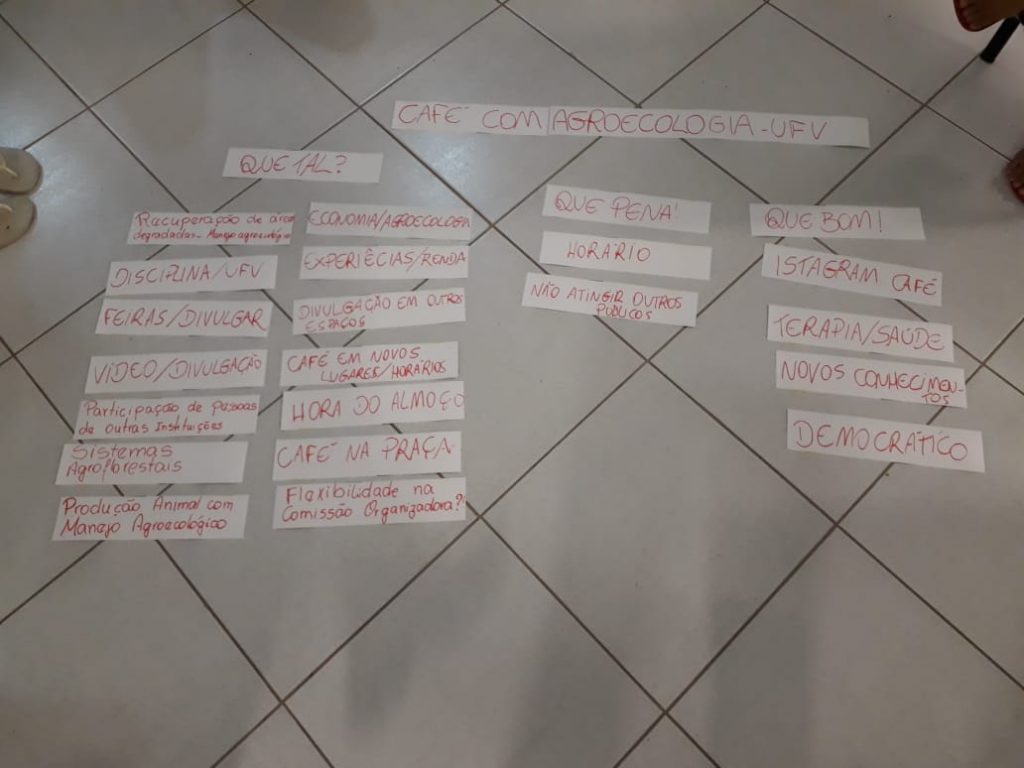 CAFÉ COM AGROECOLOGIA-UFV
QUE TAL?
Recuperação de áreas
degradadas- Manejo agroecológico
DISCIPLINA/UFV
FEIRAS/DIVULGAR
VIDEO/DIVULGAÇÃO
Participação de Pessoas
de Outras Instituições
Sistemas
Agroflorestais
Produção Animal com
Manejo Agroecológico
ECONOMIA/AGROECOLOGIA
EXPERIÊCIAS/RENDA
DIVULGAÇÃO EM OUTROS
ESPAÇOS
CAFÉ EM NOVOS
LUGARES/HORÁRIOS
HORA DO ALMOÇO
CAFÉ NA PRAÇA-
Flaxibilidade na
Comissão Organizadora?
QUE PENA!
HORÁRIO
NÃO ATINGIR OUTROS
PÚBLICOS
QUE BOM!
ISTAGRAM CAFÉ
TERAPIA/SAÚDE
NOVOS CONHECIMEN-
TOS
DEMOCRÁTICO